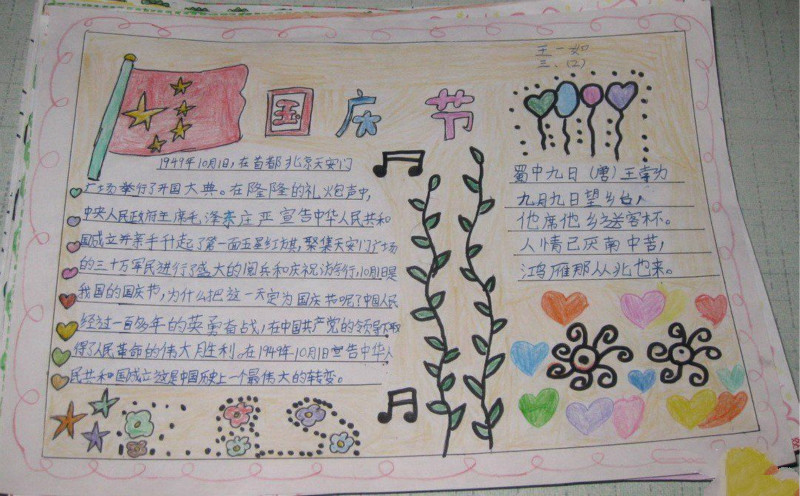 王一如
三、(2)
国庆节
1949年10月1日,在首都北京天安门
广场举行了开国大典。在隆隆的礼炮声中,
中央人民政府主席毛泽东庄严宣告中华人民共和
国成立并亲手升起了第一面五星红旗,聚集天安门广场
的三十万军民进行了盛大的阅兵和庆祝游行,10月1日是
我国的国庆节,为什么把这一天定为国庆节呢?中国人民
经过一百多年的英勇奋战,在中国共产党的领导下取
得了人民革命的伟大胜利。在1949年10月1日宣告中华人
民共和国成立这是中国历史上一个最伟大的转变。
蜀中九日 (唐) 王勃
九月九日望乡台,
他席他乡送客杯。
人情已厌南中苦,
鸿雁那从北地来。